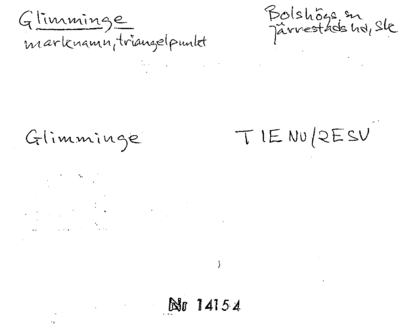 Glimminge
marknamn, triangelpunkt
Bolshögs sn
Järrestads hd, Sk
Glimminge
TIENU/RESV
Nr 14154